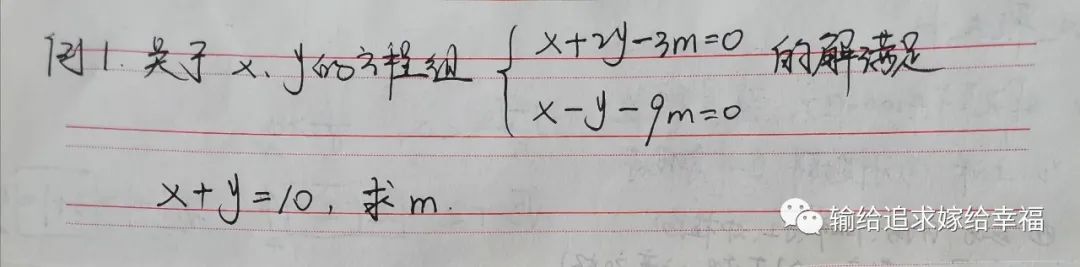 例1.关于x、y的方程组{x+2y-3m=0的解满足
x-y-9m=0
x+y=10,求m.
输给追求嫁给幸福